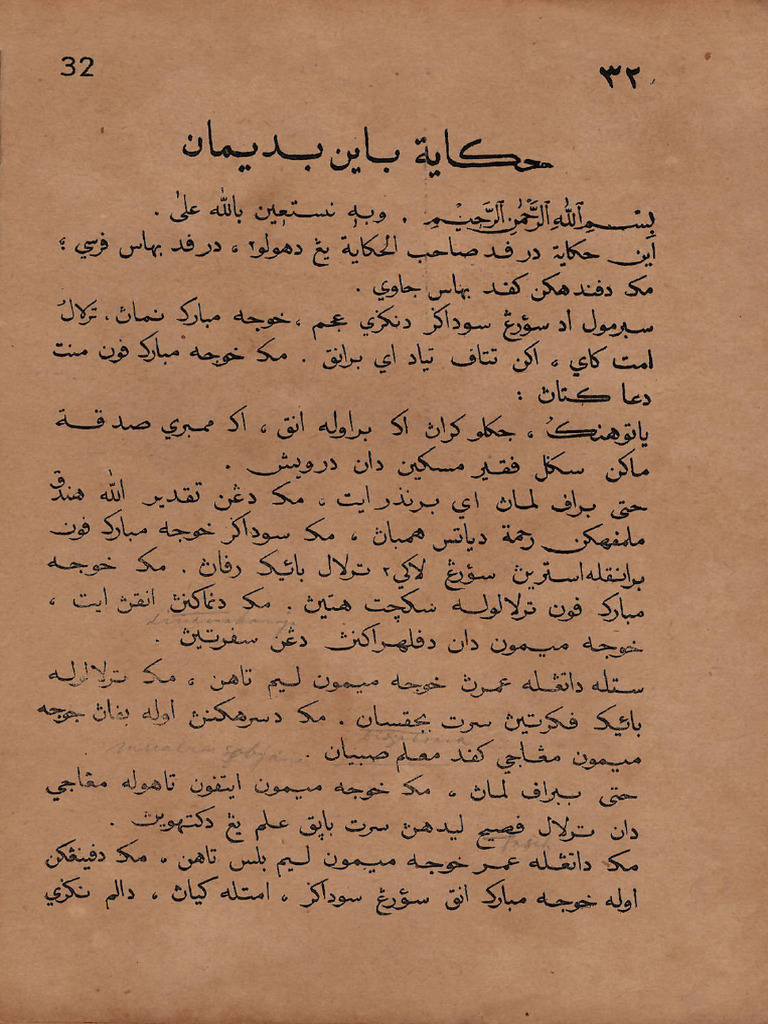 32
٣٢
حكاية باين بديمان
بِسْمِ ٱللّٰهِ ٱلرَّحْمٰنِ ٱلرَّحِيْمِ . وبه نستعين بالله علىٰ .
اين حكاية درفد صاحب الحكاية يڠ دهولو٢ ، درفد بهاس فرسي ؛
مک دفندهكن كفد بهاس جاوي .
سبرمول اد سؤرڠ سوداݢر دنݢري عجم ، خوجه مبارک نماڽ ، ترلالُ
امت كاي ، اكن تتاف تياد اي برانق . مک خوجه مبارک فون منت
دعا كتاڽ :
ياتوهنکُ ، جكلو كراڽ اک براوله انق ، اک ممبري صدقة
ماكن سݢل فقير مسكين دان درويش .
حتى براف لماڽ اي برنذر ايت ، مک دڠن تقدير الله هندق
ملمفهكن رحمة دياتس همباڽ ، مک سوداݢر خوجه مبارک فون
برانقله استرين سؤرڠ لاكي٢ ترلال بائيک رفاڽ . مک خوجه
مبارک فون ترلالوله سكچت هتيڽ . مک دنماكنڽ انقڽ ايت ،
خوجه ميمون دان دفلهراكنڽ دڠن سفرتيڽ .
ستله داتڠله عمرڽ خوجه ميمون ليم تاهن ، مک ترلالوله
بائيک فكرتيڽ سرت بجقسان . مک دسرهكنڽ اوله بفاڽ خوجه
ميمون مڠاجي كفد معلم صبيان .
حتى ببراف لماڽ ، مک خوجه ميمون ايتفون تاهوله مڠاجي
دان ترلال فصيح ليدهڽ سرت باپق علم يڠ دكتهويڽ .
مک داتڠله عمر خوجه ميمون ليم بلس تاهن ، مک دفينڠكن
اوله خوجه مبارک انق سؤرڠ سوداݢر ، امتله كياڽ ، دالم نݢري